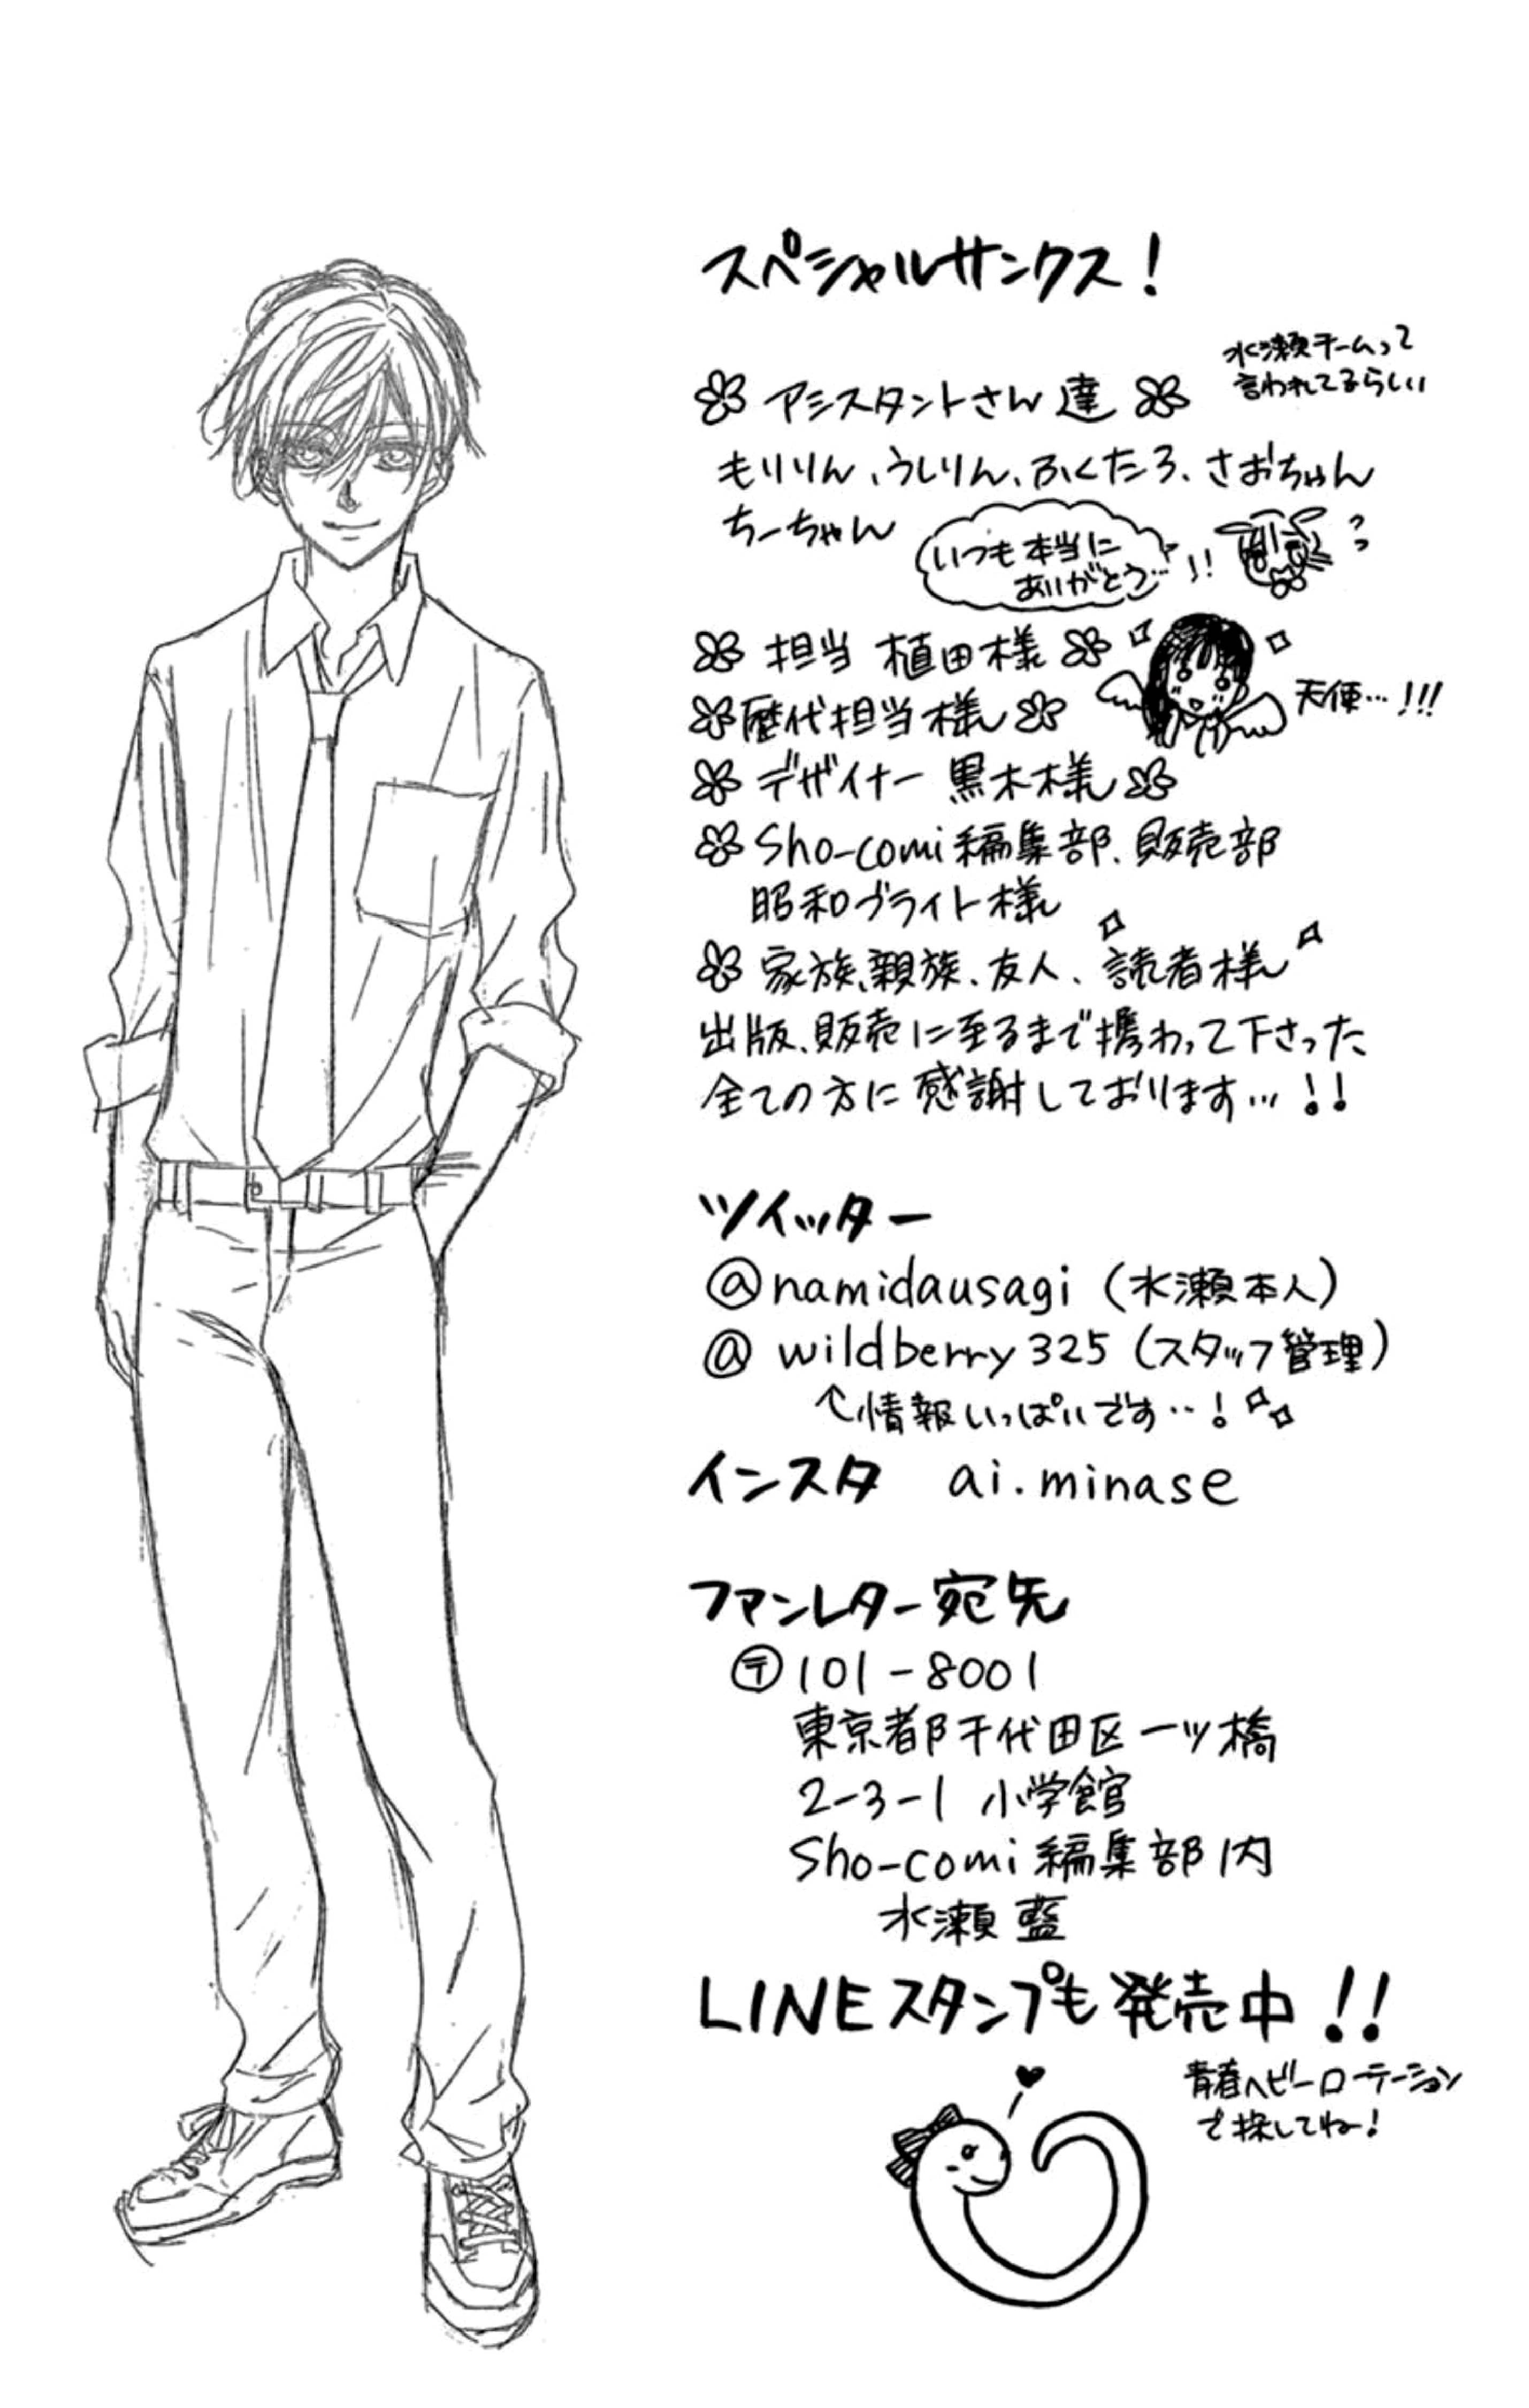 スペシャルサンクス！
水瀬チームって
言われてるらしい
アシスタントさん達
もりりん、うしりん、ふくたろ、さおちゃん
ちーちゃん
いつも本当に
ありがとう…!!
担当 植田様
歴代担当様
天使…!!!
デザイナー 黒木様
Sho-comi編集部、販売部
昭和ブライト様
家族、親族、友人、読者様
出版、販売に至るまで携わって下さった
全ての方に感謝しております…!!
ツイッター
@namidausagi（水瀬本人）
@wildberry325（スタッフ管理）
↑情報いっぱいです…！
インスタ ai.minase
ファンレター宛先
〒101-8001
東京都千代田区一ツ橋
2-3-1 小学館
Sho-comi編集部内
水瀬 藍
LINEスタンプも発売中!!
青春ヘビーローテーション
で探してね！